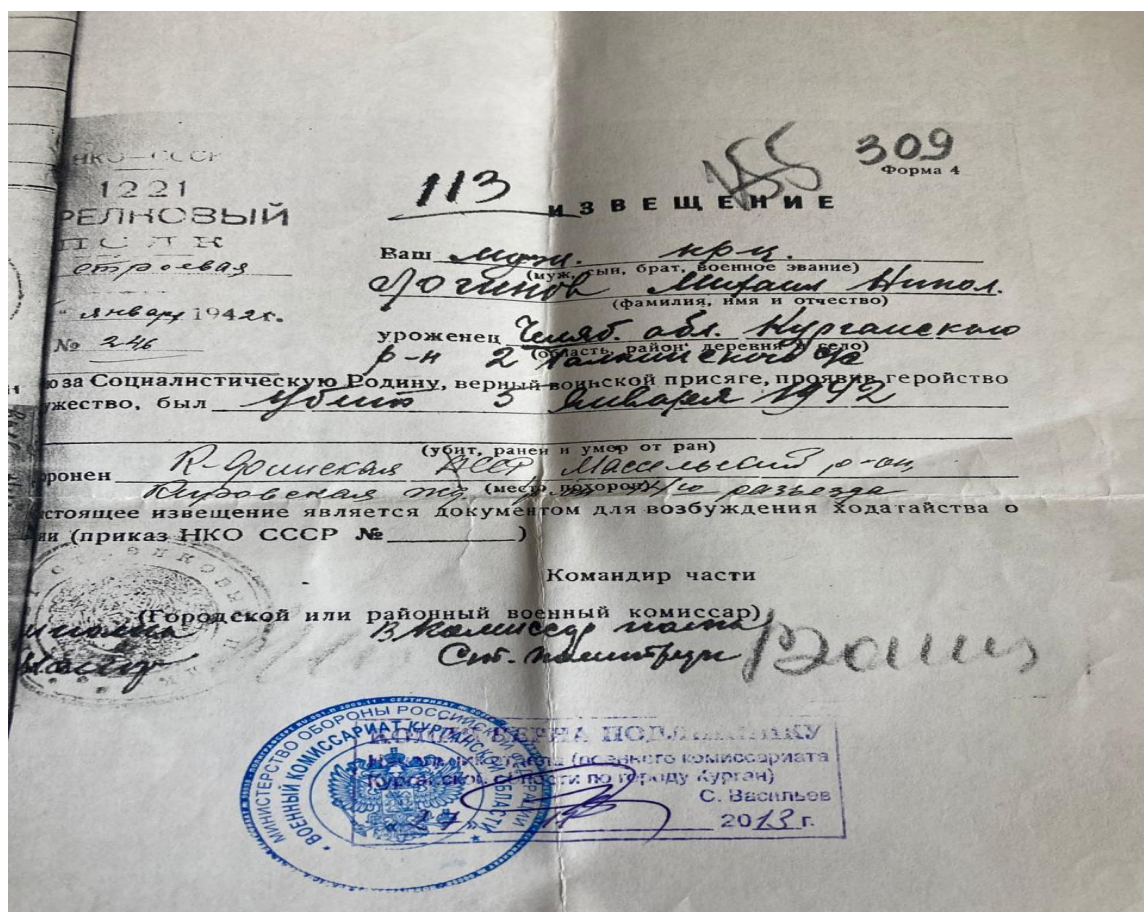 309
155
Форма 4
НКО—СССР
1221
РЕЛКОВЫЙ
ПОЛК
113
ИЗВЕЩЕНИЕ
Ваш муж. кр-ц.
(муж, сын, брат, военное звание)
Логинов Михаил Никол.
(фамилия, имя и отчество)
января 1942 г.
№ 246
уроженец Челяб. обл. Курганского
(область, район, деревня и село)
р-н 2
юза Социалистическую Родину, верный воинской присяге, проявив геройство
жество, был убит 5 января 1942
(убит, ранен и умер от ран)
оронен К-Финская АССР Массельский р-он
(место похорон)
Кировская жд разъезда
стоящее извещение является документом для возбуждения ходатайства о
ии (приказ НКО СССР № )
Командир части
(Городской или районный военный комиссар)
В. Комиссар полка
Ст. политрук
МИНИСТЕРСТВО ОБОРОНЫ РОССИЙСКОЙ ФЕДЕРАЦИИ
ВОЕННЫЙ КОМИССАРИАТ КУРГАНСКОЙ ОБЛАСТИ
КОПИЯ ВЕРНА ПОДЛИННИКУ
Начальник отдела (военного комиссариата
Курганской области по городу Курган)
С. Васильев
2013 г.